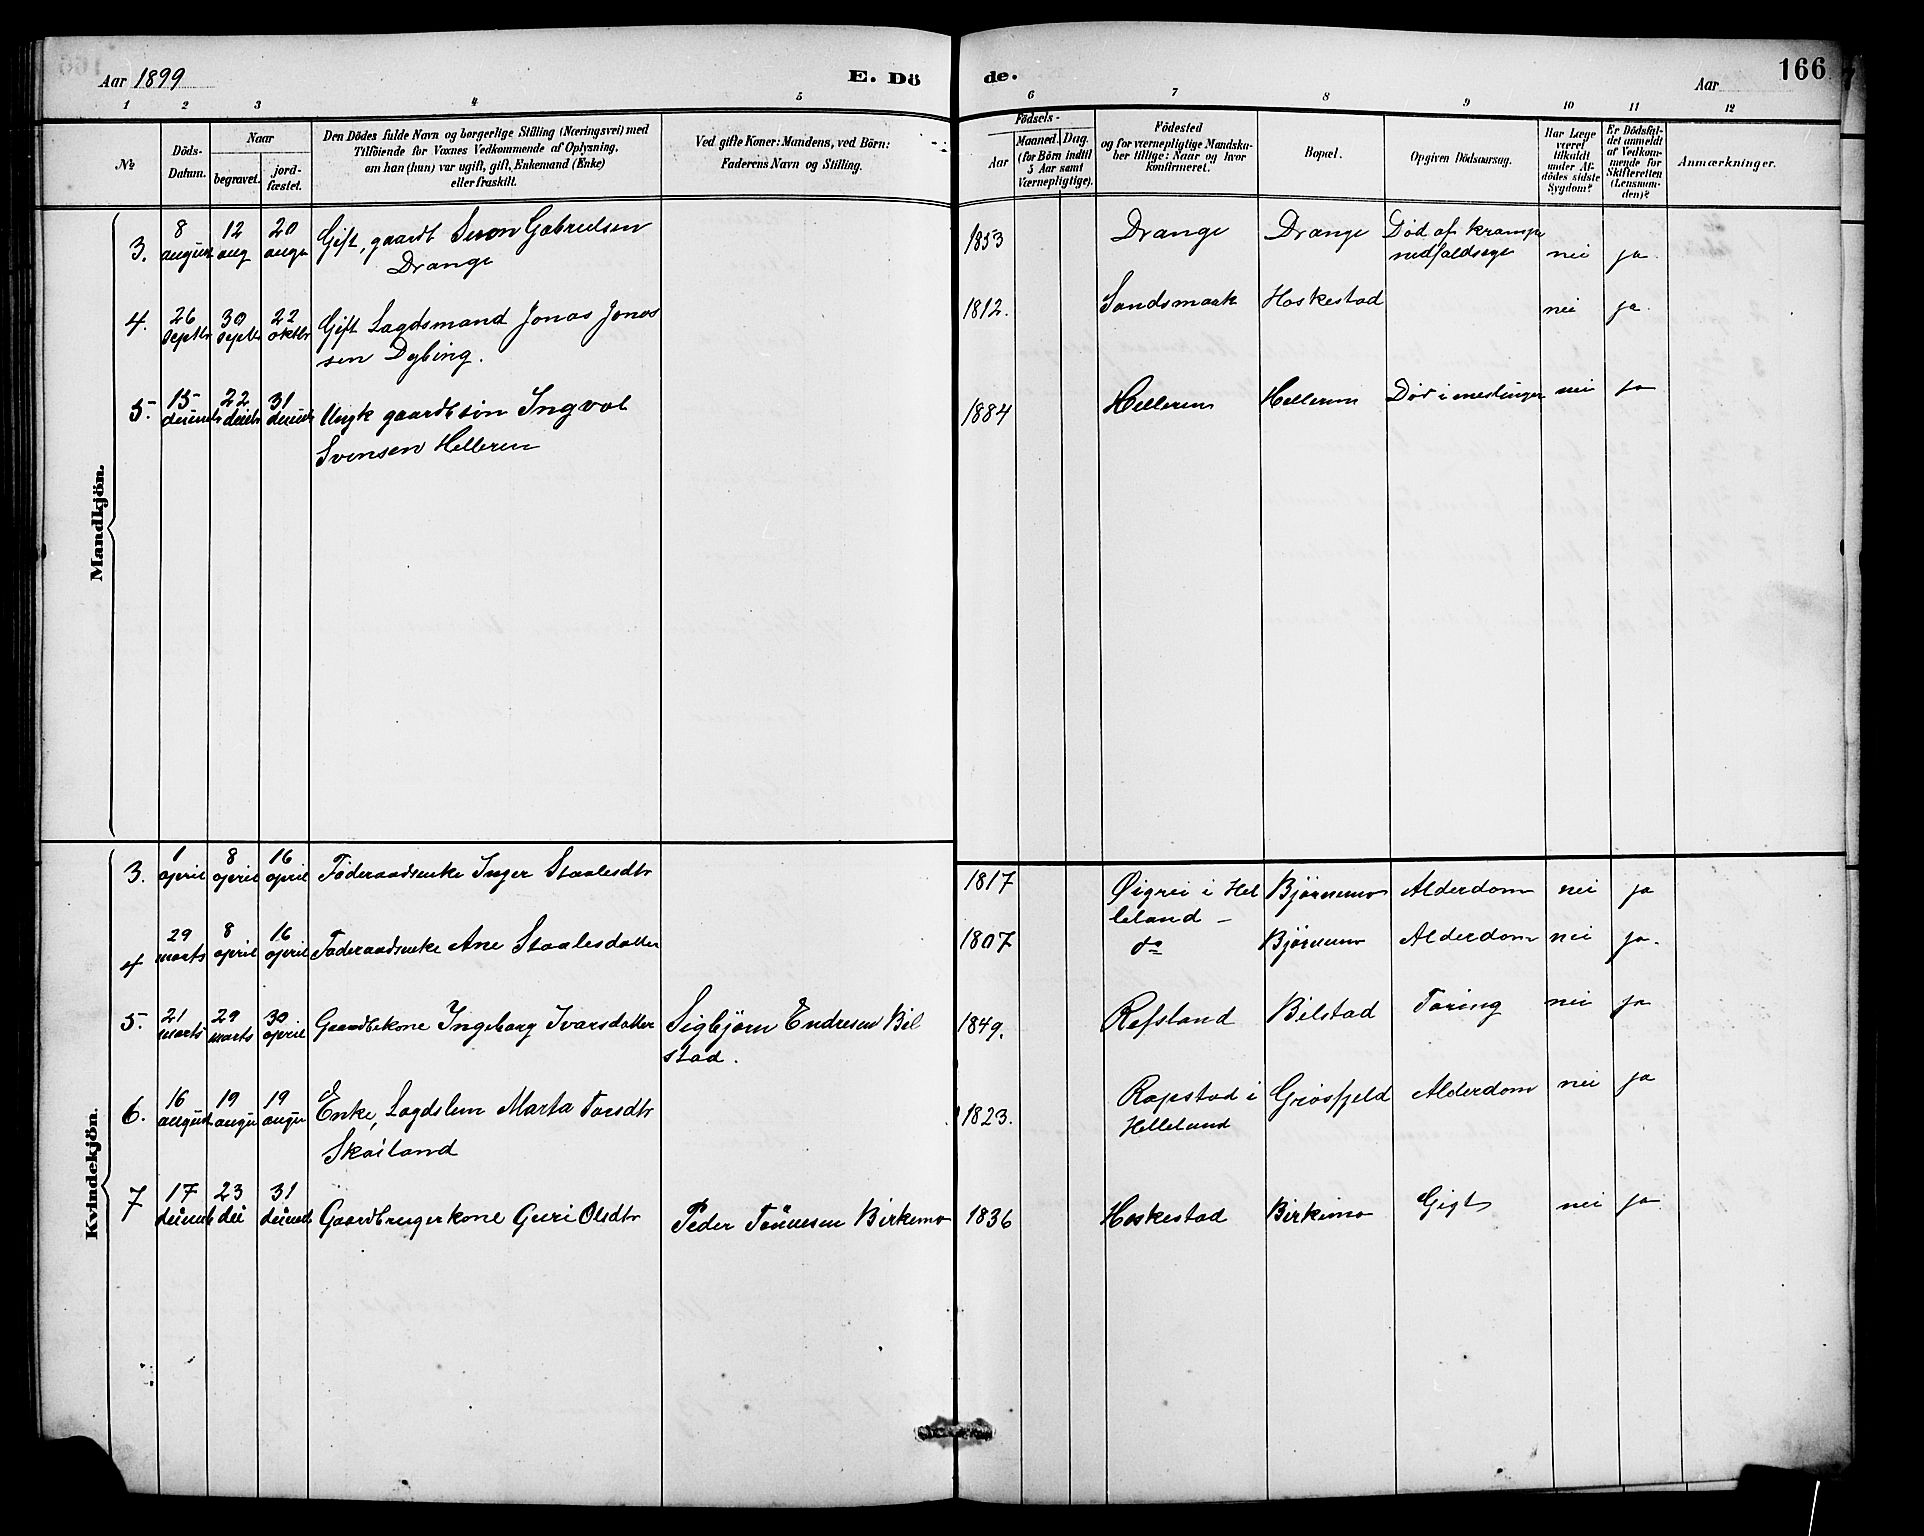 Aar 1899
E. Dö
de.
Aar
166
1 2 3 4 5 6 7 8 9 10 11 12
№
Döds-
Datum.
Naar
begravet.
jord-
fæstet.
Den Dödes fulde Navn og borgerlige Stilling (Næringsvei) med
Tilföiende for Voxnes Vedkommende af Oplysning,
om han (hun) var ugift, gift, Enkemand (Enke)
eller fraskilt.
Ved gifte Koner: Mandens, ved Börn:
Faderens Navn og Stilling.
Födsels-
Aar
Maaned. Dag.
(for Börn indtil
5 Aar samt
Værnepligtige).
Födested
og for værnepligtige Mandska-
ber tillige: Naar og hvor
konfirmeret.
Bopæl.
Opgiven Dödsaarsag.
Har Læge
været
tilkaldt
under Af-
dödes sidste
Sygdom?
Er Dödsfal-
det anmeldt
af Vedkom-
mende for
Skifteretten
(Lensman-
den)?
Anmærkninger.
Mandkjön.
3. 8 august 12 aug 20 augu Gift, gaardb Simon Gabrielsen 1853 Drange Drange Død af krampe
Drange nedfaldsyge nei ja.
4. 26 septbr 30 septbr 22 oktbr Gift Lagdsmand Jonas Jonas 1812. Sandsmark Heskestad nei ja.
sen Dybing.
5. 15 decemb 22 decbr 31 decemb Ungk gaardb søn Ingval 1884 Helleren Helleren Død i meslinger nei ja
Svensen Helleren
Kvindekjön.
3. 1 april 8 april 16 april Føderaadsenke Inger Staalesdtr 1817 Øigrei i Hel Bjørnemo Alderdom nei ja
leland –
4 29 marts 8 april 16 april Føderaadsenke Ane Staalesdatter 1807 do Bjørnemo Alderdom nei ja.
5. 21 marts 29 marts 30 april Gaardbkone Ingeborg Ivarsdatter Sigbjørn Endresen Bil 1849. Refsland Bilstad Tæring nei ja
stad.
6. 16 august 19 augu 19 augu Enke, Lagdslem Marta Tarsdtr 1823. Rapstad i Grøsfjeld Alderdom nei ja
Skailand Helleland
7 17 decemb 23 dec 31 decemb Gaardbrugerkone Guri Olsdtr Peder Tønnesen Birkemo 1836 Heskestad Birkemo Gigt nei ja.